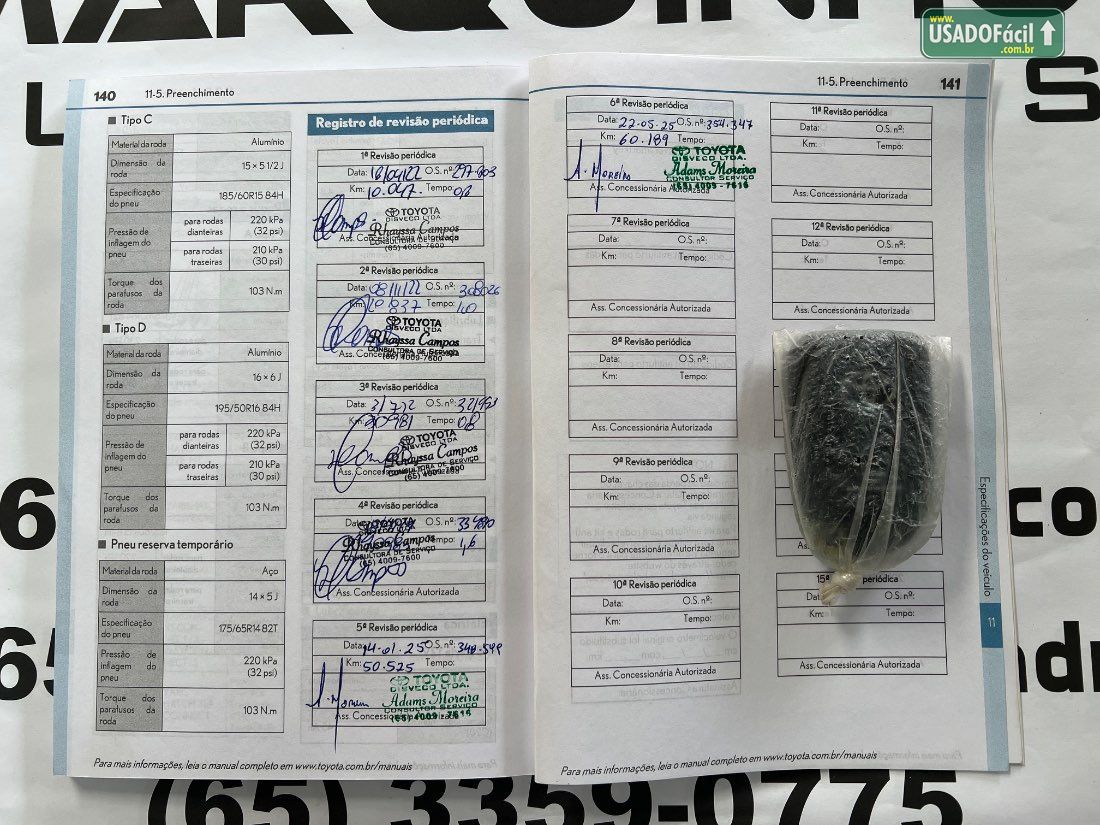 MARQUINHOS
www.
USADOFácil
.com.br
140 11-5. Preenchimento
Tipo C
Material da roda Alumínio
Dimensão da roda 15 × 5 1/2 J
Especificação do pneu 185/60R15 84H
Pressão de inflagem do pneu para rodas dianteiras 220 kPa (32 psi)
para rodas traseiras 210 kPa (30 psi)
Torque dos parafusos da roda 103 N.m
Tipo D
Material da roda Alumínio
Dimensão da roda 16 × 6 J
Especificação do pneu 195/50R16 84H
Pressão de inflagem do pneu para rodas dianteiras 220 kPa (32 psi)
para rodas traseiras 210 kPa (30 psi)
Torque dos parafusos da roda 103 N.m
Pneu reserva temporário
Material da roda Aço
Dimensão da roda 14 × 5 J
Especificação do pneu 175/65R14 82T
Pressão de inflagem do pneu 220 kPa (32 psi)
Torque dos parafusos da roda 103 N.m
Registro de revisão periódica
1ª Revisão periódica
Data: O.S. nº:
Km: 10.047 Tempo:
TOYOTA
DISVECO LTDA.
Rhayssa Campos
CONSULTORA DE SERVIÇO
(65) 4009-7600
Ass. Concessionária Autorizada
2ª Revisão periódica
Data: 08/11/22 O.S. nº: 308026
Km: 20837 Tempo: 1,0
TOYOTA
DISVECO LTDA.
Rhayssa Campos
CONSULTORA DE SERVIÇO
(65) 4009-7600
Ass. Concessionária Autorizada
3ª Revisão periódica
Data: O.S. nº:
Km: 30981 Tempo: 08
TOYOTA
DISVECO LTDA.
Rhayssa Campos
CONSULTORA DE SERVIÇO
(65) 4009-7600
Ass. Concessionária Autorizada
4ª Revisão periódica
Data: O.S. nº:
Rhayssa Campos
CONSULTORA DE SERVIÇO
(65) 4009-7600
Ass. Concessionária Autorizada
5ª Revisão periódica
Data: 14.01.25 O.S. nº: 348.599
Km: 50.525 Tempo:
A. Moreira
TOYOTA
DISVECO LTDA.
Adams Moreira
CONSULTOR SERVIÇO
(65) 4009-7616
Ass. Concessionária Autorizada
Para mais informações, leia o manual completo em www.toyota.com.br/manuais
11-5. Preenchimento 141
6ª Revisão periódica
Data: 22.05.25 O.S. nº: 354.347
Km: 60.189 Tempo:
A. Moreira
TOYOTA
DISVECO LTDA.
Adams Moreira
CONSULTOR SERVIÇO
(65) 4009-7616
Ass. Concessionária Autorizada
7ª Revisão periódica
Data: O.S. nº:
Km: Tempo:
Ass. Concessionária Autorizada
8ª Revisão periódica
Data: O.S. nº:
Km: Tempo:
Ass. Concessionária Autorizada
9ª Revisão periódica
Data: O.S. nº:
Km: Tempo:
Ass. Concessionária Autorizada
10ª Revisão periódica
Data: O.S. nº:
Km: Tempo:
Ass. Concessionária Autorizada
11ª Revisão periódica
Data: O.S. nº:
Km: Tempo:
Ass. Concessionária Autorizada
12ª Revisão periódica
Data: O.S. nº:
Km: Tempo:
Ass. Concessionária Autorizada
15ª Revisão periódica
O.S. nº:
Km: Tempo:
Ass. Concessionária Autorizada
Especificações do veículo
11
Para mais informações, leia o manual completo em www.toyota.com.br/manuais
(65) 3359-0775